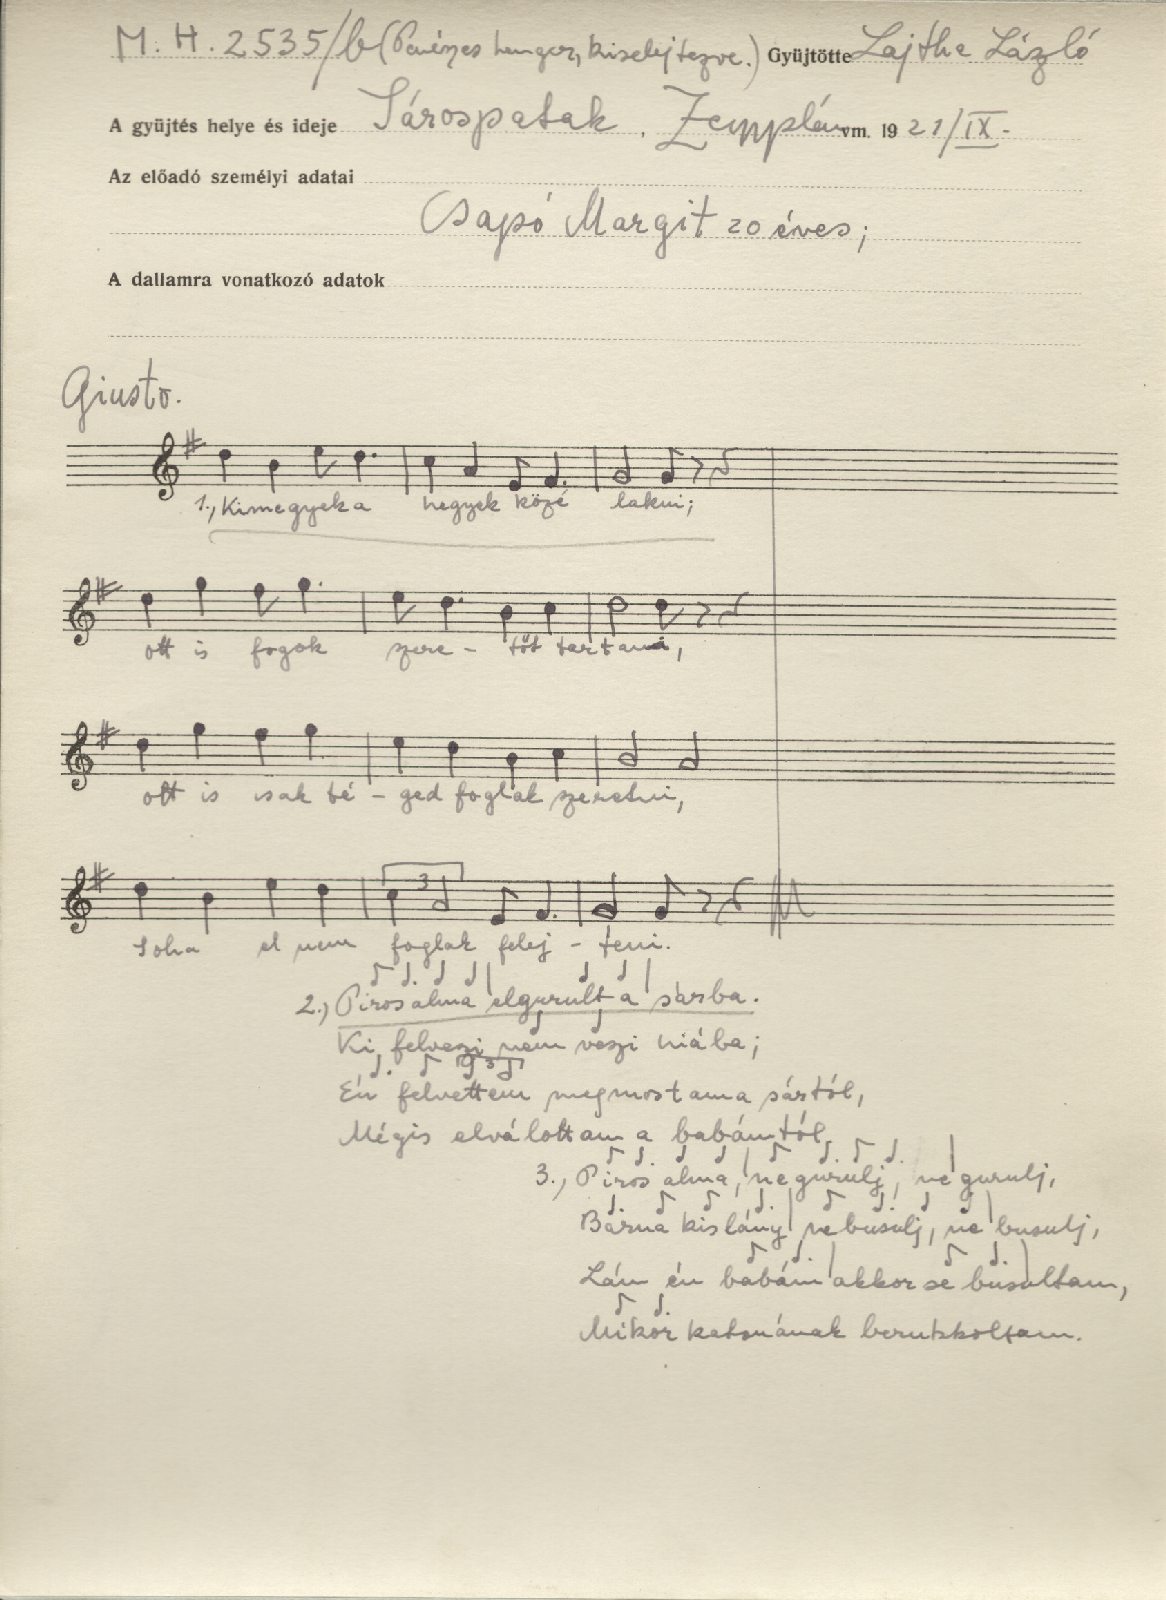 M. H. 2535/b (Penészes henger, kiselejtezve.) Gyüjtötte Lajtha László
A gyüjtés helye és ideje Sárospatak, Zemplén vm. 1921/IX.
Az előadó személyi adatai
Csapó Margit 20 éves;
A dallamra vonatkozó adatok
Giusto.
1., Kimegyek a hegyek közé lakni;
ott is fogok szere - tőt tartani,
3
ott is csak té - ged foglak szeretni,
Soha el nem foglak felej - teni.
2., Piros alma elgurult a sárba.
Ki felveszi nem veszi hiába;
3
Én felvettem megmostam a sártól,
Mégis elváltam a babámtól.
3., Piros alma, ne gurulj, ne gurulj,
Barna kislány ne busulj, ne busulj,
Lám én babám akkor se busultam,
Mikor katonának berukkoltam.